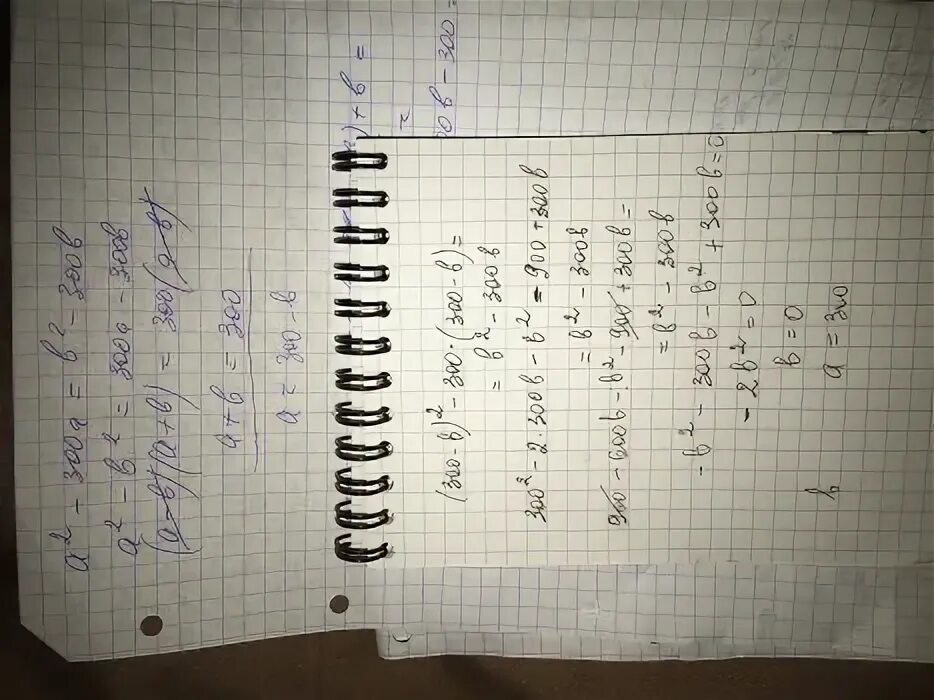 a² - 300a = b² - 300b
a² - b² = 300a - 300b
(a-b)(a+b) = 300(a-b)
a+b = 300
a = 300 - b
) + b =
0b - 300 =
(300-b)² - 300·(300-b) =
= b² - 300b
300² - 2·300b - b² - 900 + 300b
= b² - 300b
900 - 600b - b² - 900 + 300b =
= b² - 300b
- b² - 300b - b² + 300b = 0
- 2b² = 0
b = 0
b a = 300